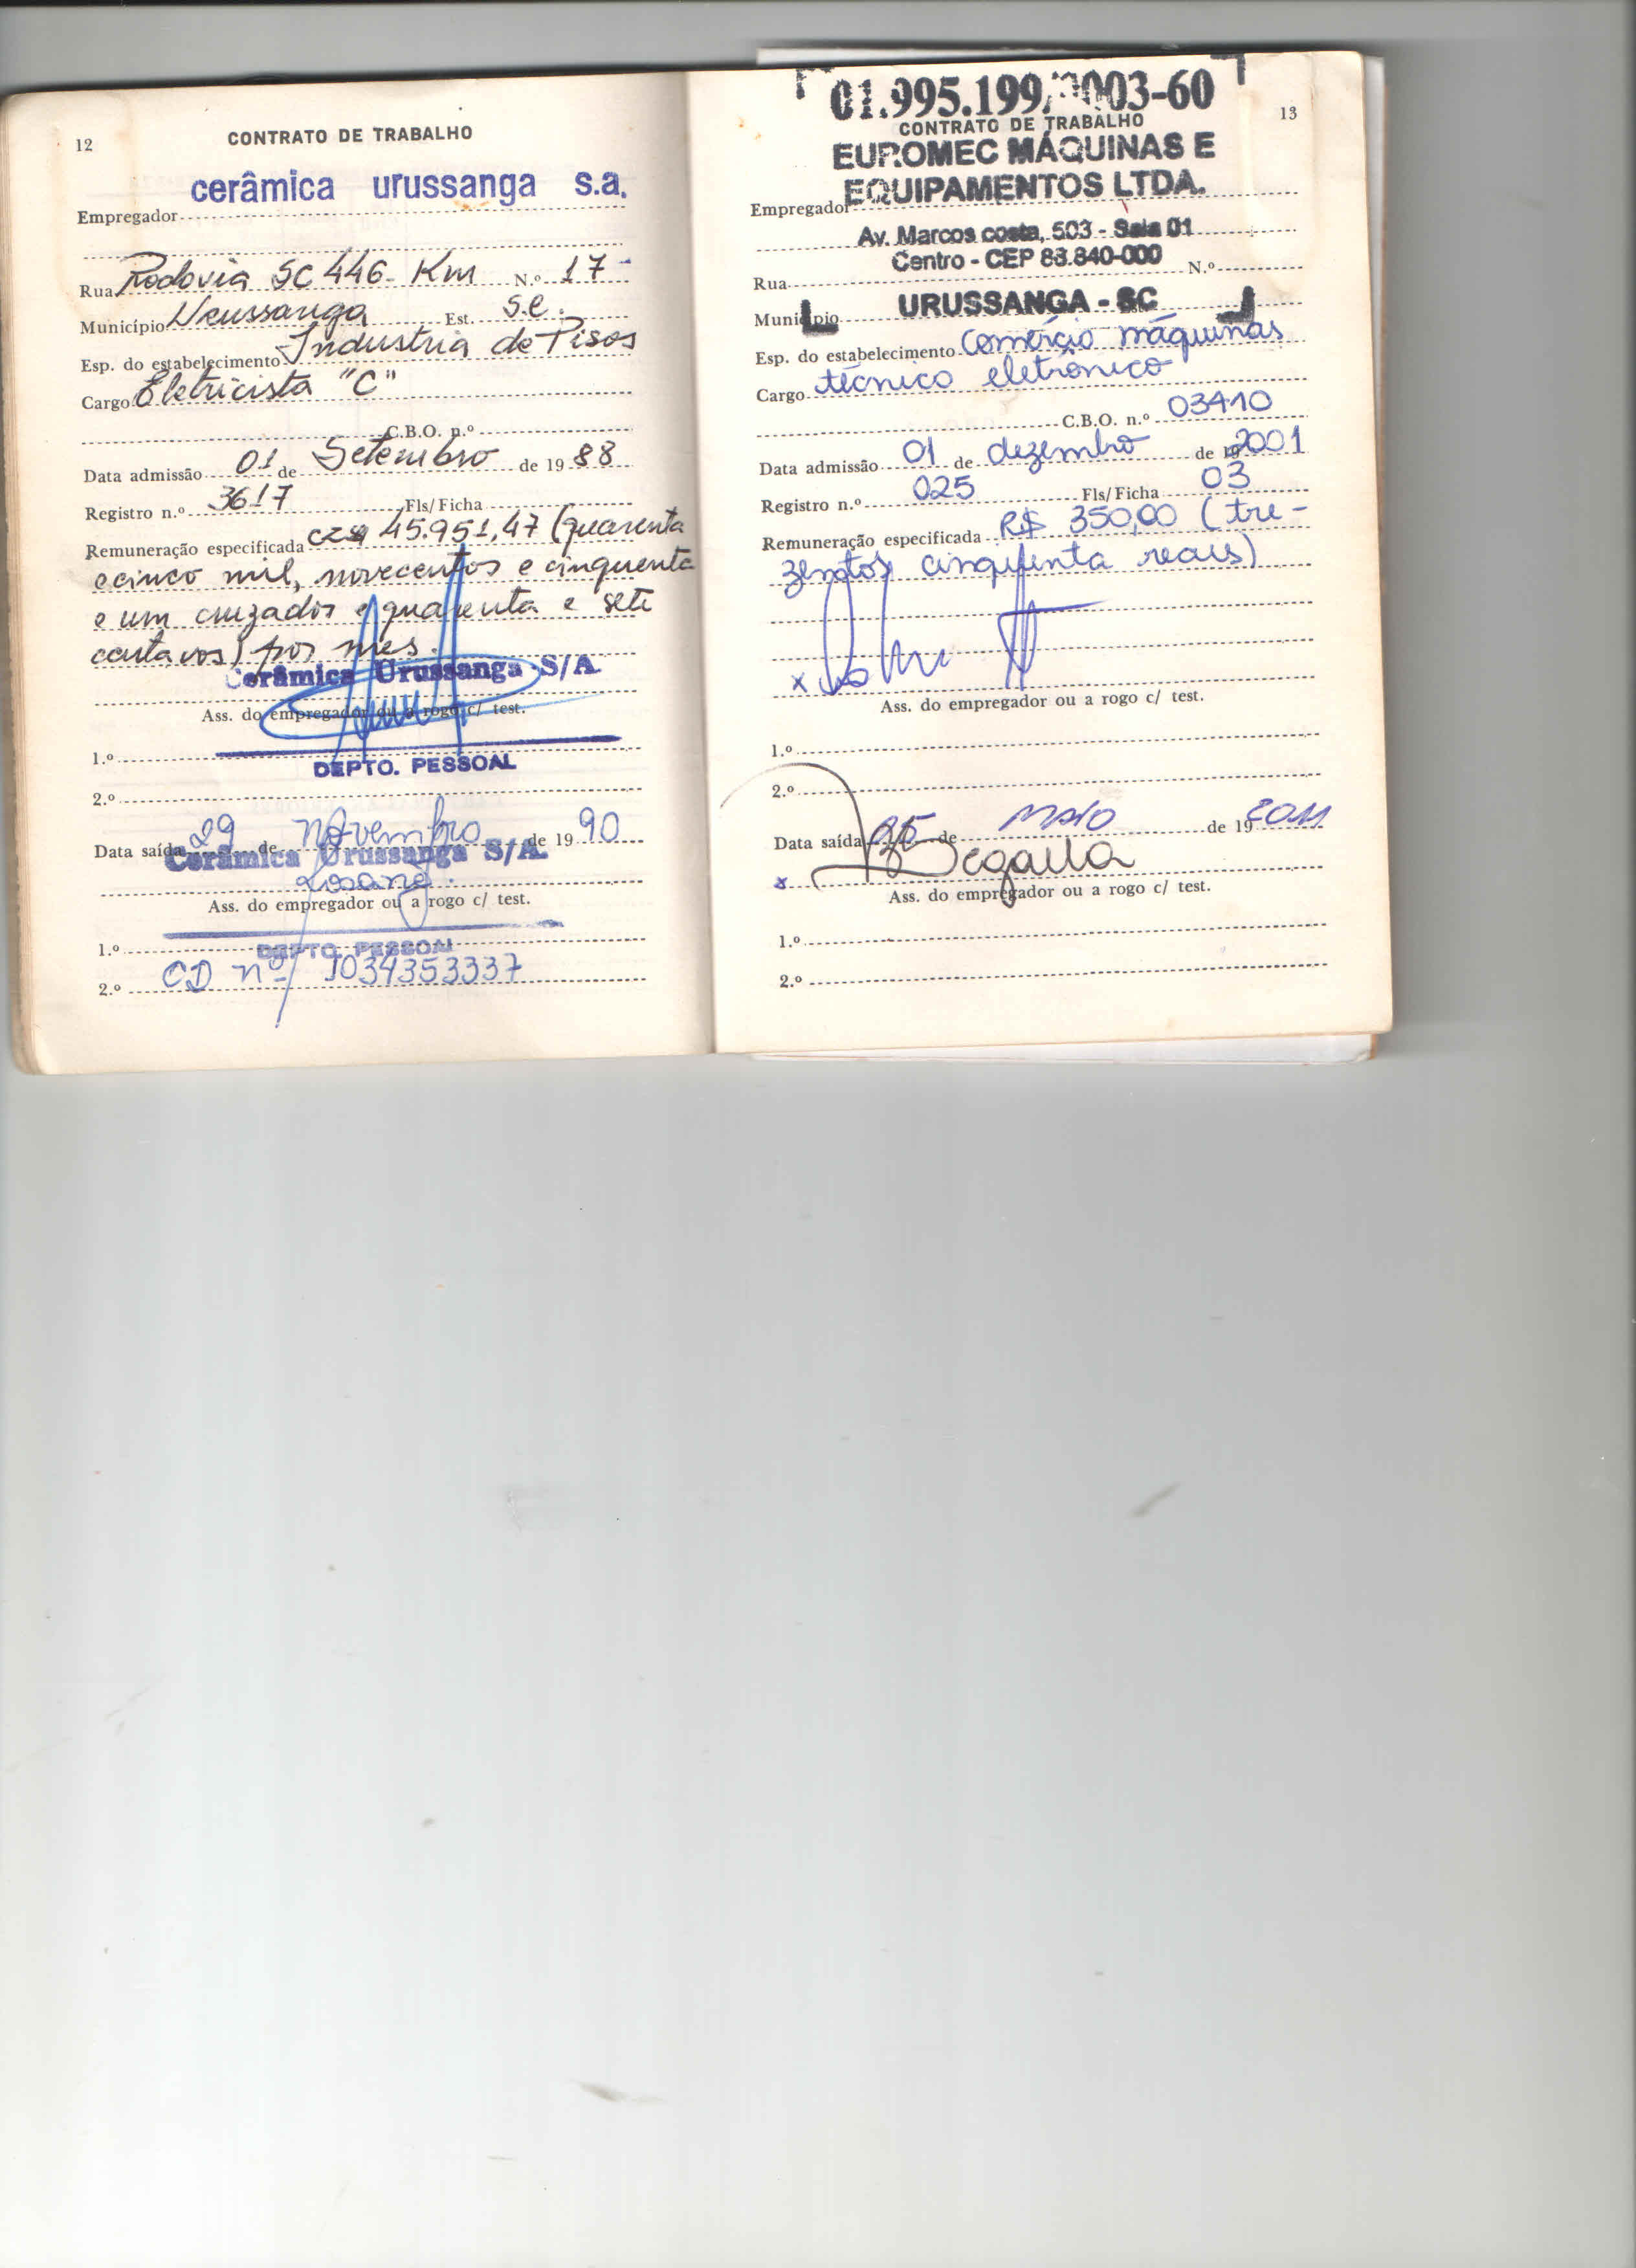 12
CONTRATO DE TRABALHO
cerâmica urussanga s.a.
Empregador
Rua Rodovia SC 446 Km N.º 17
Município Urussanga Est. S.C.
Esp. do estabelecimento Industria de Pisos
Cargo Eletricista "C"
C.B.O. n.º
Data admissão 01 de Setembro de 1988
Registro n.º 3617 Fls/Ficha
Remuneração especificada cz$ 45.951,47 (quarenta
e cinco mil, novecentos e cinquenta
e um cruzados e quarenta e sete
centavos) por mes.
Cerâmica Urussanga S/A
Ass. do empregador ou a rogo c/ test.
1.º
DEPTO. PESSOAL
2.º
Data saída 29 de Novembro de 1990
Cerâmica Urussanga S/A.
Rosane.
Ass. do empregador ou a rogo c/ test.
1.º
DEPTO. PESSOAL
2.º CD nº 1034353337
01.995.199/0003-60
13
CONTRATO DE TRABALHO
EUROMEC MÁQUINAS E
EQUIPAMENTOS LTDA.
Empregador
Av. Marcos costa, 503 - Sala 01
Centro - CEP 88.840-000
Rua N.º
URUSSANGA - SC
Município
Esp. do estabelecimento Comércio máquinas
Cargo técnico eletrônico
C.B.O. n.º 03410
Data admissão 01 de dezembro de 19 2001
Registro n.º 025 Fls/Ficha 03
Remuneração especificada R$ 350,00 (tre-
zentos cinqüenta reais)
x
Ass. do empregador ou a rogo c/ test.
1.º
2.º
Data saída 25 de maio de 19 2011
x Segalla
Ass. do empregador ou a rogo c/ test.
1.º
2.º